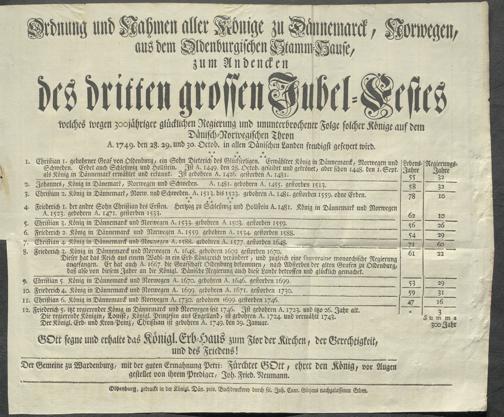 Ordnung und Nahmen aller Könige zu Dännemarck, Norwegen,
aus dem Oldenburgischen Stamm-Hause,
zum Andencken
des dritten grossen Jubel-Festes
welches wegen 300jähriger glücklichen Regierung und ununterbrochener Folge solcher Könige auf dem
Dänisch-Norwegischen Thron
A. 1749. den 28. 29. und 30. Octob. in allen Dänischen Landen freudigst gefeyert wird.
Lebens- Regierungs-
Jahre Jahre
1. Christian 1. gebohrner Graf von Oldenburg, ein Sohn Dieterich des Glückseligen. Erwählter König in Dännemarck, Norwegen und
Schweden. Erbet auch Schleswig und Holstein. Ist A. 1449. den 28. Octob. gesalbet und gekrönet, aber schon 1448. den 1. Sept.
als König in Dännemarck erwählet und erkannt. Ist gebohren A. 1426. gestorben A. 1481. 55 32
2. Johannes, König in Dännemarck, Norwegen und Schweden. A. 1481. gebohren A. 1455. gestorben 1513. 58 32
3. Christian 2. König in Dännemarck, Norw. und Schweden. A. 1513. bis 1523. gebohren A. 1481. gestorben 1559. ohne Erben. 78 10
4. Friederich 1. der andre Sohn Christian des Ersten. Hertzog zu Schleswig und Holstein A. 1481. König in Dännemarck und Norwegen
A. 1523. gebohren A. 1471. gestorben 1533. 62 10
5. Christian 3. König in Dännemarck und Norwegen A. 1533. gebohren A. 1503. gestorben 1559. 56 26
6. Friederich 2. König in Dännemarck und Norwegen A. 1559. gebohren A. 1534. gestorben 1588. 54 29
7. Christian 4. König in Dännemarck und Norwegen A. 1588. gebohren A. 1577. gestorben 1648. 71 60
8. Friederich 3. König in Dännemarck und Norwegen A. 1648. gebohren 1609. gestorben 1670. 61 22
Dieser hat das Reich aus einem Wahl- in ein Erb-Königreich verändert, und zugleich eine souveraine monarchische Regierung
angefangen. Er hat auch A. 1667. die Grafschaft Oldenburg bekommen, nach Absterben des alten Grafen zu Oldenburg,
daß also von diesem Jahre an die Königl. Dänische Regierung auch diese Lande betroffen und glücklich gemachet.
9. Christian 5. König in Dännemarck und Norwegen A. 1670. gebohren A. 1646. gestorben 1699. 53 29
10. Friederich 4. König in Dännemarck und Norwegen A. 1699. gebohren A. 1671. gestorben 1730. 59 31
11. Christian 6. König in Dännemarck und Norwegen A. 1730. gebohren 1699. gestorben 1746. 47 16
12. Friederich 5. itzt regierender König in Dännemarck und Norwegen seit 1746. Ist gebohren A. 1723. und itzo 26. Jahr alt. 3
Die regierende Königin, Louise, Königl. Printzeßin aus Engelland, ist gebohren A. 1724. und vermählt 1743.
Der Königl. Erb- und Cron-Printz, Christian ist gebohren A. 1749. den 29. Januar.
Summa
300 Jahr
GOtt segne und erhalte das Königl. Erb-Haus zum Flor der Kirchen, der Gerechtigkeit,
und des Friedens!
Der Gemeine zu Wardenburg, mit der guten Ermahnung Petri: Fürchtet GOtt, ehret den König, vor Augen
gestellet von ihrem Prediger, Joh. Fried. Neumann.
Oldenburg, gedruckt in der Königl. Dän. priv. Buchdruckerey durch sel. Joh. Conr. Götjens nachgelassenen Erben.